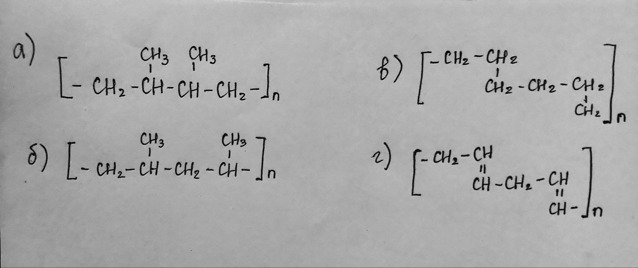 а)
CH3 CH3
[- CH2 -CH-CH-CH2 -]n
б)
CH3 CH3
[- CH2-CH-CH2-CH-]n
в)
[- CH2-CH2
CH2-CH2-CH2
CH2]n
г)
[- CH2-CH
CH-CH2-CH
CH-]n